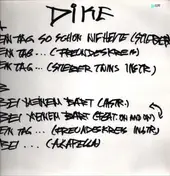 DIKE
A
EIN TAG SO SCHÖN WIE HEUTE (STIEBER
EIN TAG ... (FREUNDESKREIS)
EIN TAG ... (STIEBER TWINS INSTR.)
B
BEI MEINEM BART (INSTR.)
BEI MEINEM BART (FEAT. ON AND ON)
EIN TAG ... (FREUNDESKREIS INSTR)
BEI ... (AKAPELLA)